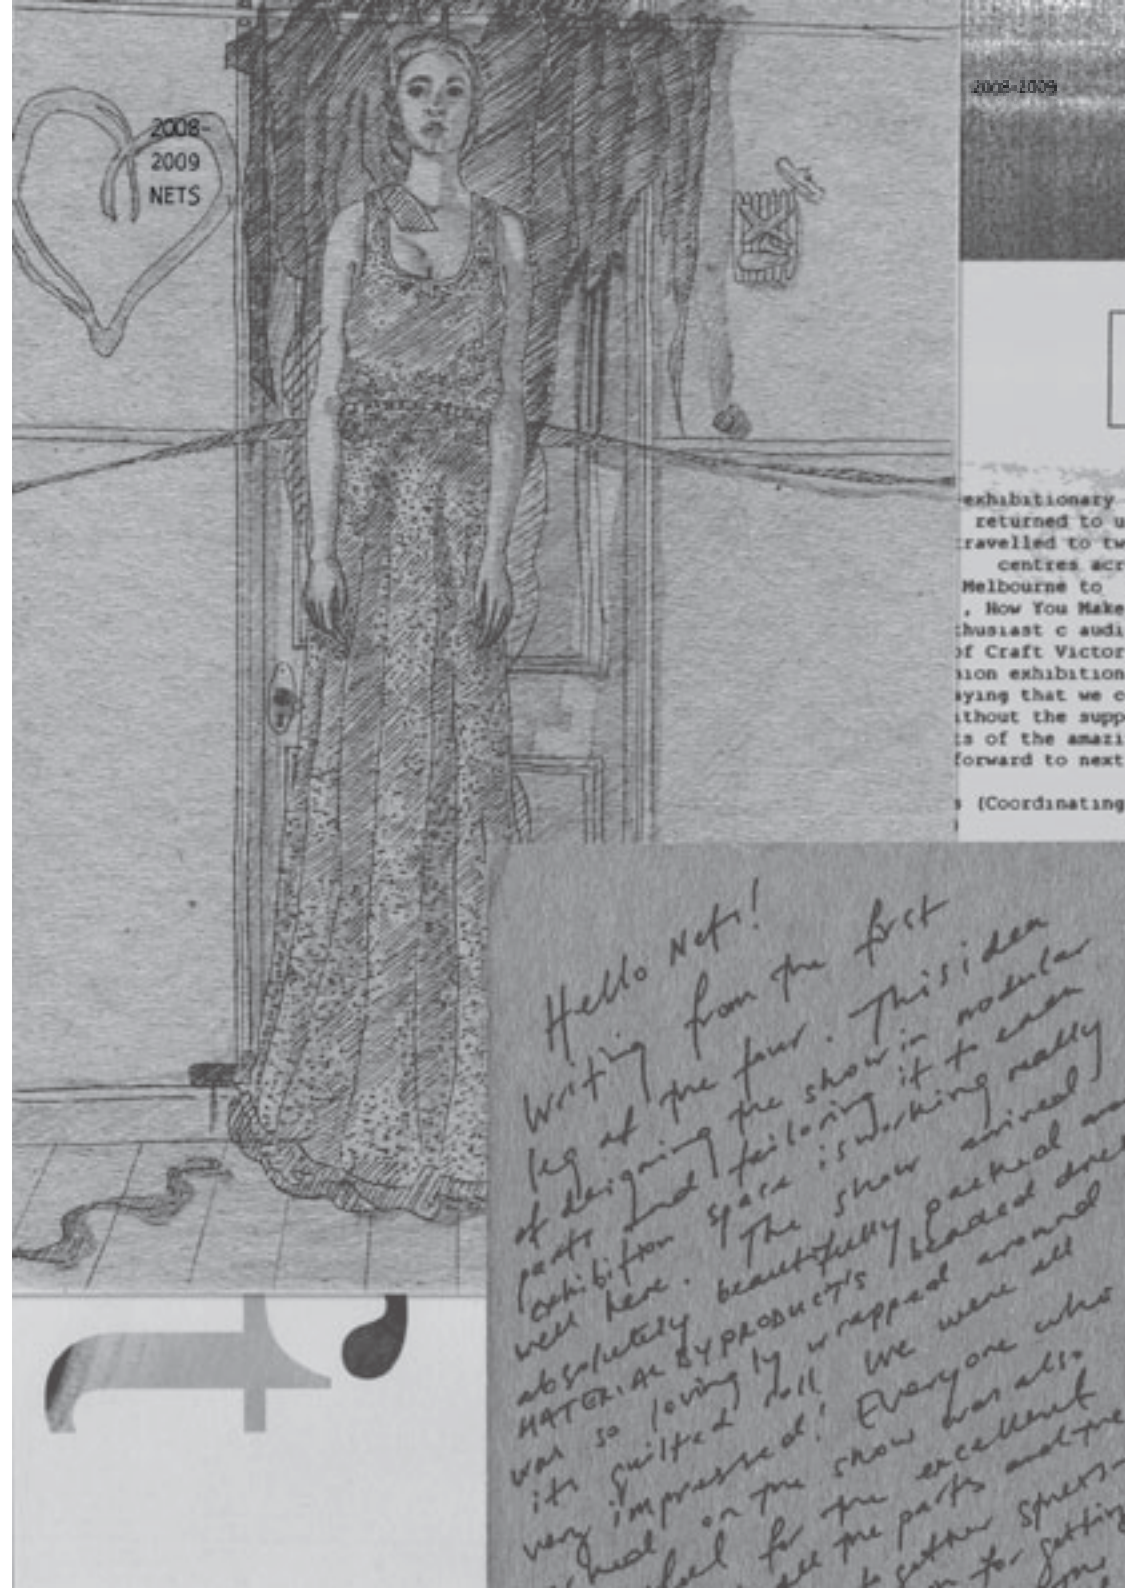 2008-
2009
NETS
2008-2009
exhibitionary
returned to u
travelled to tw
centres acr
Melbourne to
, How You Make
thusiast c audi
of Craft Victor
sion exhibition
aying that we c
ithout the supp
ts of the amazi
forward to next
s (Coordinating
Hello Nets!
Writing from the first
leg of the four. This idea
of designing the show in modular
parts and tailoring it to each
exhibition space is working really
well here. The show arrived
absolutely beautifully packed and
MATERIAL BYPRODUCT'S beaded dress
was so lovingly wrapped around
its quilted roll. We were all
very impressed! Everyone who
on the show was also
for the excellent
the parts and the
together stress-
for getting
f